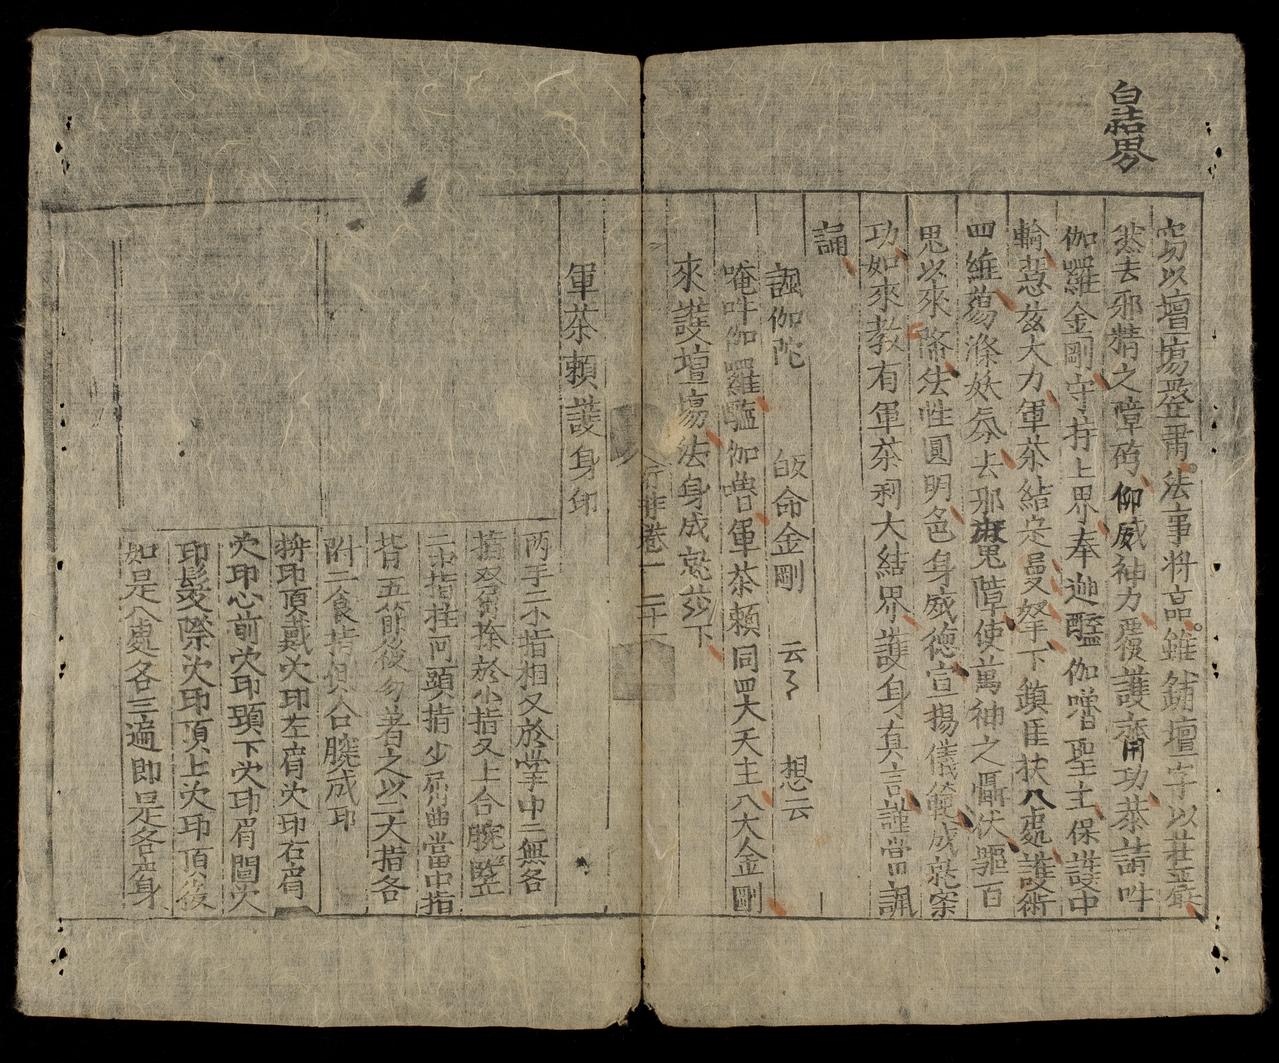 白結界
窃以壇場整肅法事将品雖鋪壇字以莊嚴
然去邪精之障碍仰威神力覆護齋功恭請吽
伽羅金剛守持上界奉迦毉伽噜聖主保護中
輪惹玆大力軍茶結定昷叉孥下鎮匡扶八處護術
四維蕩滌妖氛去邪魔䰟障使萬神之懾伏驅百
䰟以來降法性圓明色身威德宣揚儀範成就案
功如來教有軍茶利大結界護身真言謹當諷
誦
諷伽陀 皈命金剛 云〻 想云
唵吽伽羅驉伽噜軍茶賴同四大天主八大金剛
來護壇場法身成就莎下
作非卷一 二十一
軍茶賴護身印
两手二小指相叉於掌中二無名
指双屈捺於小指叉上合腕竪
二中指拄两頭指少屈曲當中指
背五節後勿著之以二大指各
附二食指側合腕成印
捧印頂戴次印左肩次印右肩
次印心前次印頸下次印眉間次
印髮際次印頂上次印頂後
如是八處各三遍即是各旋身